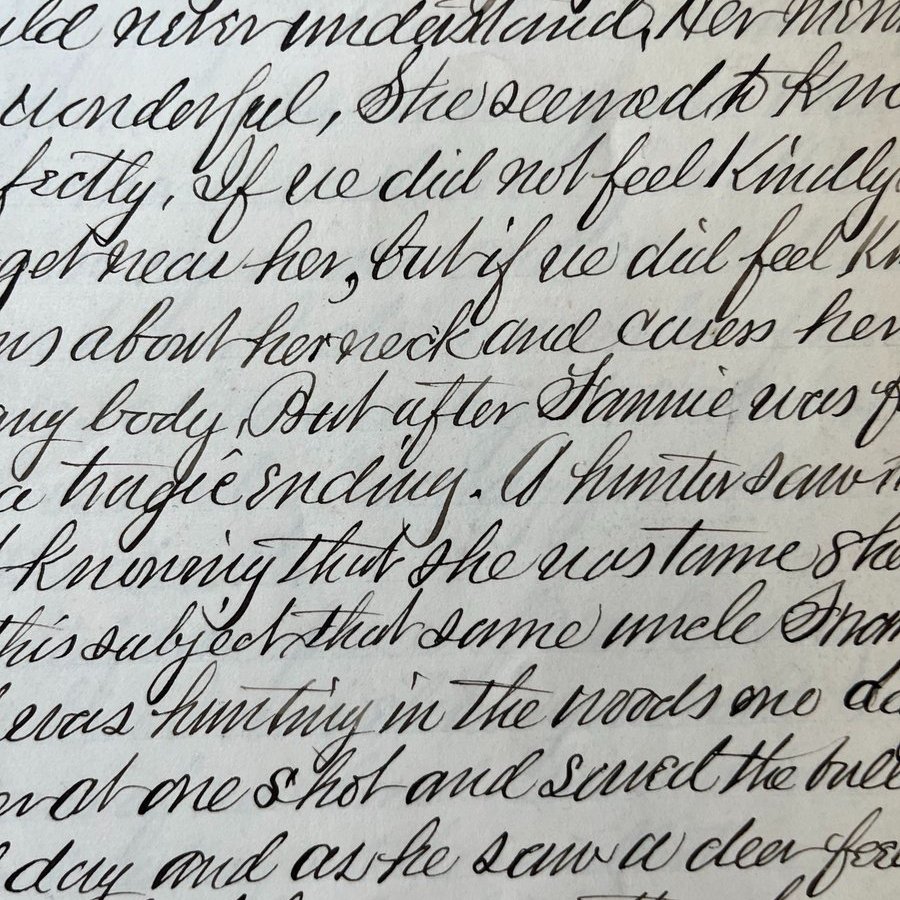 uld never understand, Her mem
wonderful, She seemed to kno
fectly, If we did not feel Kindly
get near her, but if we did feel Ki
ms about her neck and caress her
any body, But after Fannie was f
a tragic ending. A hunter saw h
knowing that she was tame she
this subject that same uncle Fran
was hunting in the woods one da
er at one shot and saved the bull
day and as he saw a deer feed